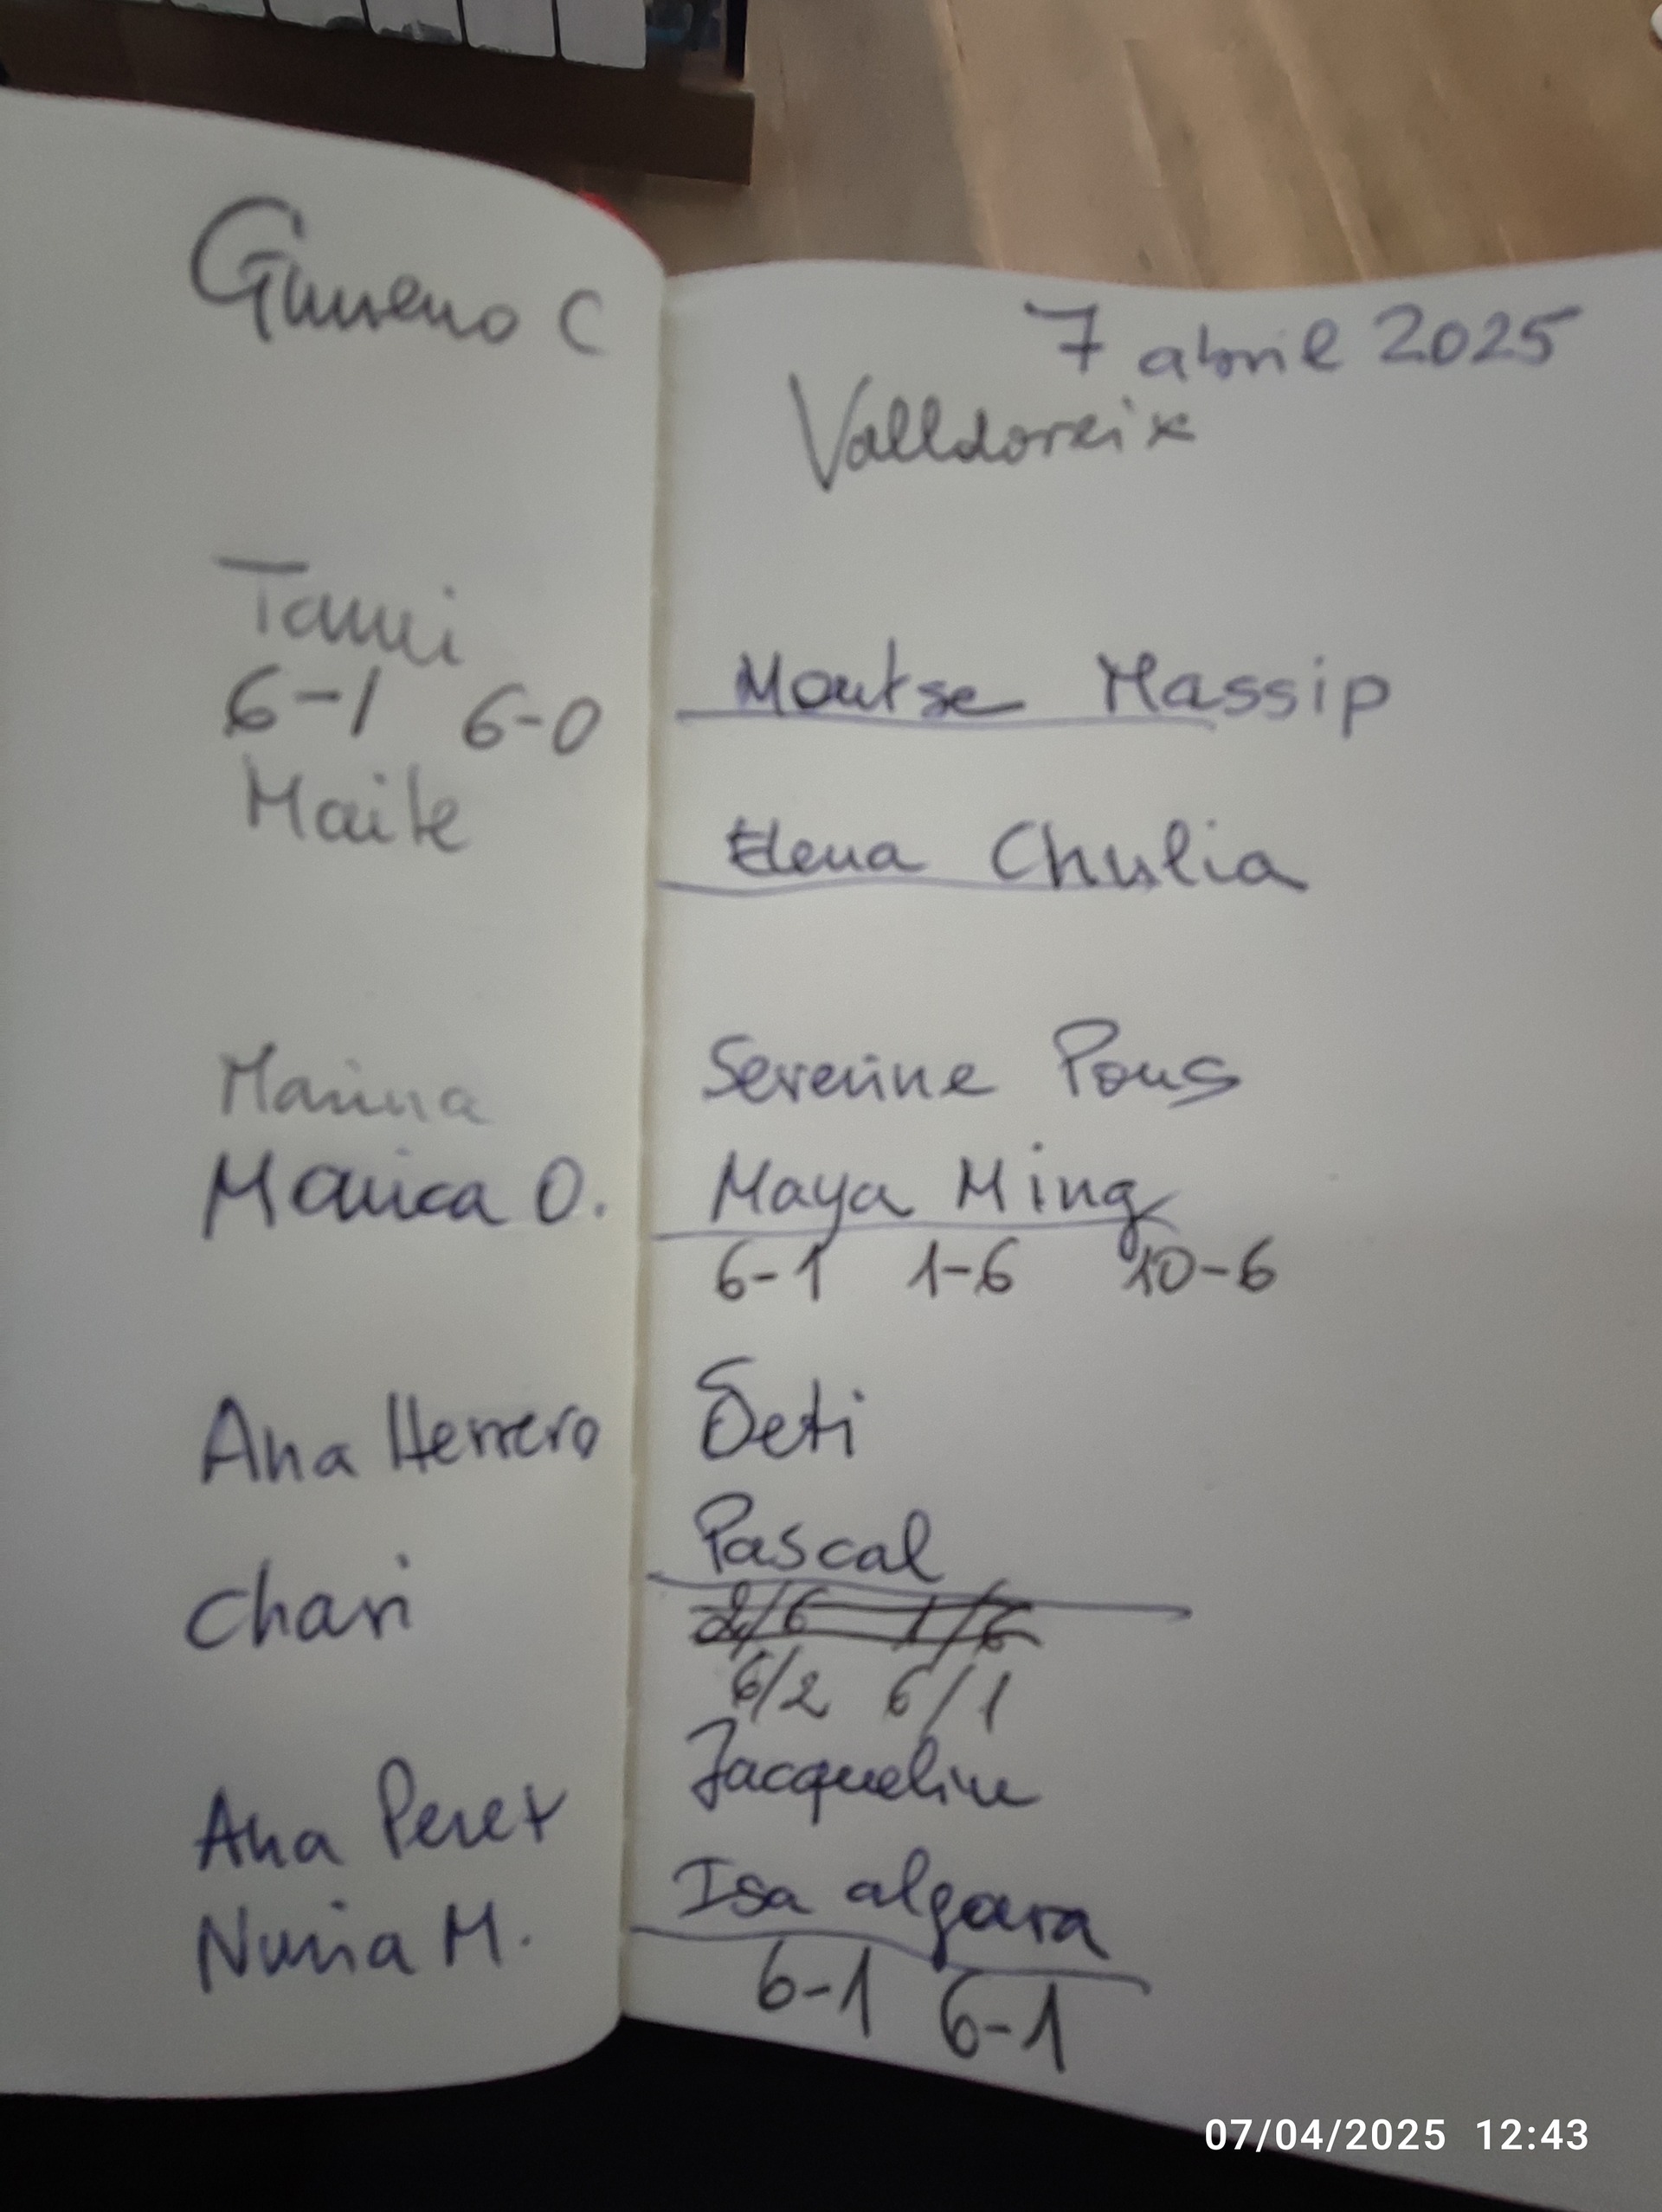 Gimeno C
Tami
6-1 6-0
Maite
Marina
Monica O.
Ana Herrero
Chari
Ana Peret
Nuria M.
7 abril 2025
Valldoreix
Montse Massip
Elena Chulia
Severine Pous
Maya Ming
6-1 1-6 10-6
Beti
Pascal
2/6 1/6
6/2 6/1
Jacqueline
Isa algara
6-1 6-1
07/04/2025 12:43